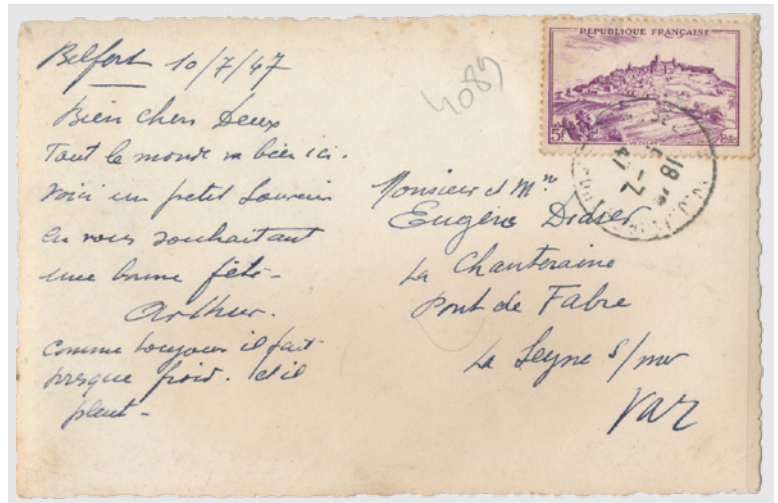 Belfort 10/7/47
Bien chers Deux
Tout le monde va bien ici.
Voici un petit Souvenir
en vous souhaitant
une bonne fête -
Arthur.
comme toujours il fait
presque froid. et il
pleut -
4089
REPUBLIQUE FRANÇAISE
5F
18
-7
47
Monsieur et Mme
Eugène Didier
La Chanteraine
Pont de Fabre
La Seyne s/mer
Var